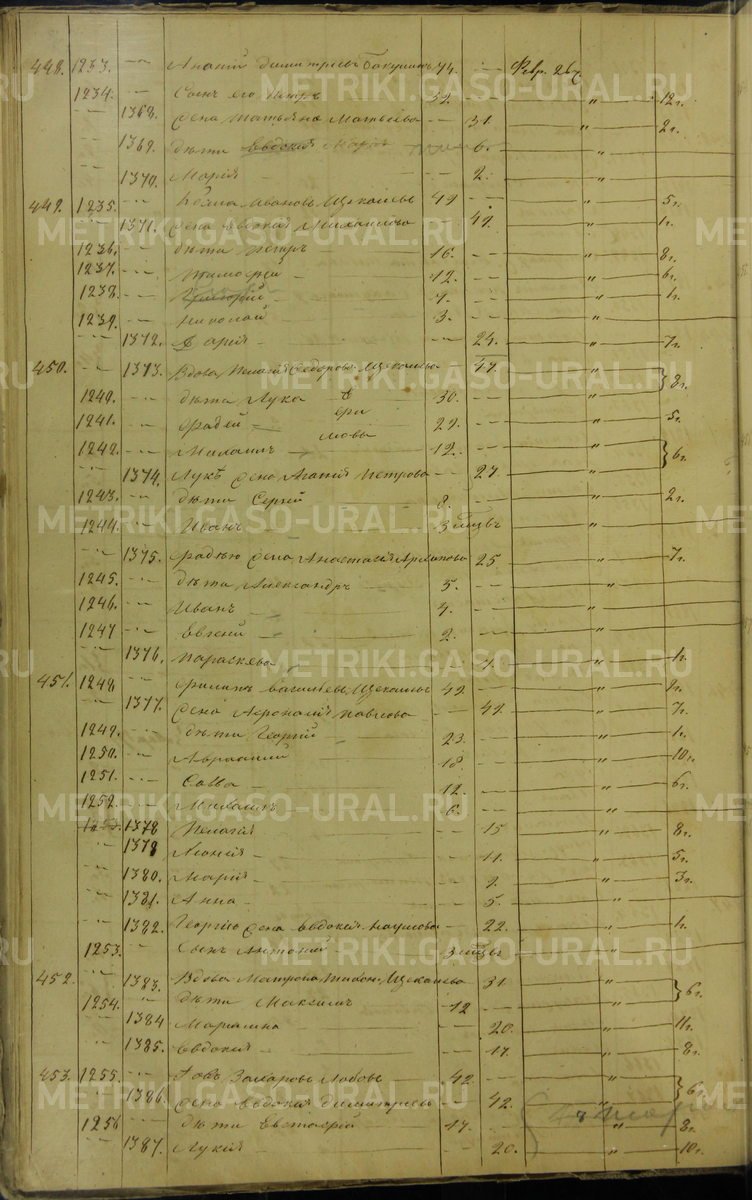 448. 1233. Ананий Димитриевъ Бакунинъ 74. Февр. 26
1234. Сынъ его Петръ 32. " 12 г.
1368. Жена Татьяна Матвеева 31. " 2 г.
1369. Дѣти Евдокия Мария 6. "
1370. Мария 2. "
449. 1235. Иванова Щекалевъ 49 " 5 г.
1371. Жена Евдокия Михайлова 49. " 1 г.
1236. Дѣти Петръ 16. " 8 г.
1237. Тимофей 12. " 6 г.
1238. Григорий 7. " 1 г.
1239. Николай 3. "
1372. Дария 24. " 7 г.
450. 1373. Вдова Пелагия Федорова Щекалева 47. " 8 г.
1240. Дѣти Лука 30. "
1241. Фадей 29. " 5 г.
1242. Михаилъ 12. " 6 г.
1374. Луки жена Агафия Петрова 27. "
1243. Дѣти Сергий 8. " 2 г.
1244. Иванъ 3 мцвъ "
1375. Фадею жена Анастасия Архипова 25 " 7 г.
1245. Дѣти Александръ 5. "
1246. Иванъ 4. "
1247 Евгений 2. "
1376. Параскева 7. " 1 г.
451. 1248 Филипъ Васильевъ Щекалевъ 49. "
1377. Жена Афонасия Павлова 49. " 7 г.
1249. Дѣти Георгий 23. " 1 г.
1250. Аврамий 18. " 10 г.
1251. Савва 12. " 6 г.
1252. Михаилъ 6. "
1253. 1378 Пелагия 15 " 8 г.
1379 Ксения 11. " 5 г.
1380. Мария 9. " 3 г.
1381. Анна 5. "
1382. Георгию жена Евдокия Наумова 22. " 1 г.
1253. Сынъ Антоний 3 мцвъ "
452. 1383. Вдова Матрона Тихон. Щекалева 31. " 6 г.
1254. Дѣти Максимъ 12 "
1384 Марианна 20. " 11 г.
1385. Евдокия 17. " 8 г.
453. 1255. Иовъ Захаровъ Лобовъ 42. " 6
1386. Жена Евдокия Димитриева 42. "
1256 Дѣти Евстафий 17. " 8 г.
1387. Лукия 20. " 10 г.
METRIKI.GASO-URAL.RU